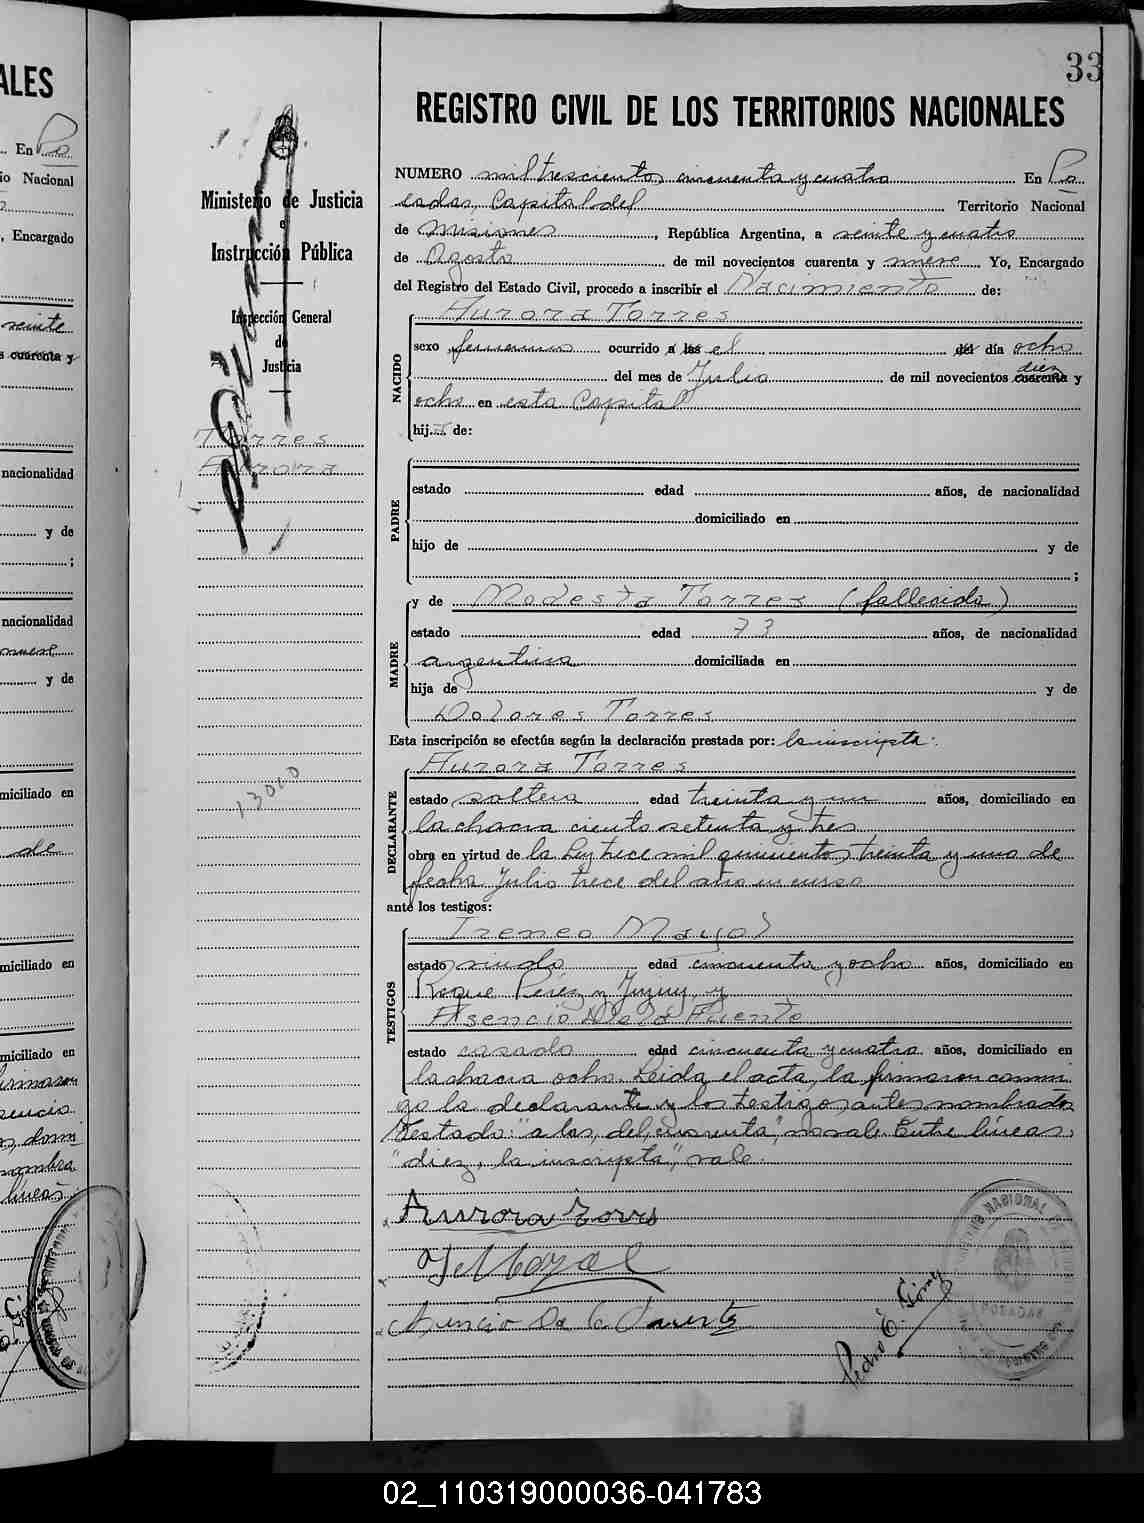 33
REGISTRO CIVIL DE LOS TERRITORIOS NACIONALES
Ministerio de Justicia
e
Instrucción Pública
Inspección General
de
Justicia
Torres
Aurora
13000
NUMERO mil trescientos cincuenta y cuatro En Po
sadas, Capital del Territorio Nacional
de Misiones, República Argentina, a veinte y cuatro
de Agosto de mil novecientos cuarenta y nueve Yo, Encargado
del Registro del Estado Civil, procedo a inscribir el Nacimiento de:
Aurora Torres
NACIDO
sexo femenino ocurrido a las el del día ocho
diez
del mes de Julio de mil novecientos cuarenta y
ocho en esta Capital
hija de:
PADRE
estado edad años, de nacionalidad
domiciliado en
hijo de y de
;
MADRE
y de Modesta Torres (fallecida)
estado edad 73 años, de nacionalidad
argentina domiciliada en
hija de y de
Dolores Torres
Esta inscripción se efectúa según la declaración prestada por: la inscripta:
DECLARANTE
Aurora Torres
estado soltera edad treinta y un años, domiciliado en
la chacra ciento setenta y tres
obra en virtud de la Ley trece mil quinientos treinta y uno de
fecha Julio trece del año en curso
ante los testigos:
TESTIGOS
Ireneo Mayol
estado viudo edad cincuenta y ocho años, domiciliado en
Roque Pérez y Jujuy, y
Asencio De la Fuente
estado casado edad cincuenta y cuatro años, domiciliado en
la chacra ocho. Leida el acta, la firmaron conmi
go la declarante y los testigos antes nombrados
Testado: "a las, del, cuarenta", no vale. Entre líneas:
"diez, la inscripta", vale.
Aurora Torres
Mayol
Asencio De la Fuente
Pedro E. Gómez
POSADAS
02_110319000036-041783